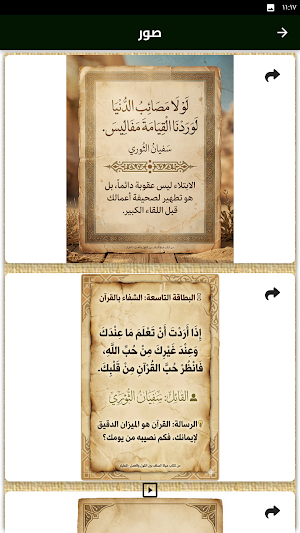 ١١:١٧
صور
لَوْلَا مَصَائِبُ الدُّنْيَا
لَوَرَدْنَا الْقِيَامَةَ مَفَالِيسَ.
سُفْيَانُ الثَّوْرِي
الابتلاء ليس عقوبة دائماً، بل
هو تطهير لصحيفة أعمالك
قبل اللقاء الكبير.
البطاقة التاسعة: الشفاء بالقرآن
إِذَا أَرَدْتَ أَنْ تَعْلَمَ مَا عِنْدَكَ
وَعِنْدَ غَيْرِكَ مِنْ حُبِّ اللَّهِ،
فَانْظُرْ حُبَّ الْقُرْآنِ مِنْ قَلْبِكَ.
القَائِلُ: سُفْيَانُ الثَّوْرِيُّ
الرسالة: القرآن هو الميزان الدقيق
لإيمانك، فكم نصيبه من يومك؟